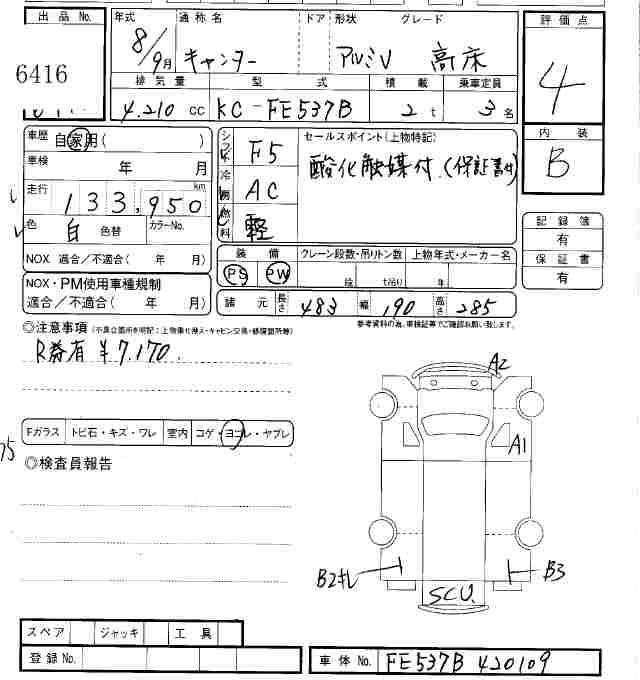 出品No.
6416
年式 通称名 ドア 形状 グレード
8/9月 キャンター アルミV 高床
排気量 型式 積載 乗車定員
4.210cc KC-FE537B 2t 3名
評価点
4
内装
B
車歴 自家用( )
車検 年 月
走行 133,950 km
色 白 色替 カラーNo.
NOX 適合/不適合( 年 月)
NOX・PM使用車種規制
適合/不適合( 年 月)
シフト F5
冷房 AC
燃料 軽
セールスポイント(上物特記)
酸化触媒付.(保証書付)
装備 クレーン段数・吊りトン数 上物年式・メーカー名
PS PW 段 t吊り 年
諸元 長さ 483 幅 190 高さ 285
参考資料の為、車検証等でご確認お願い致します。
記録簿
有
保証書
有
◎注意事項(不具合箇所を明記:上物乗せ換え・キャビン交換・修復箇所等)
R券有 ¥7.170
Fガラス トビ石・キズ・ワレ 室内 コゲ・ヨゴレ・ヤブレ
◎検査員報告
A2
A1
B2キレ
B3
SCU.
スペア ジャッキ 工具
登録No.
車体No. FE537B 420109